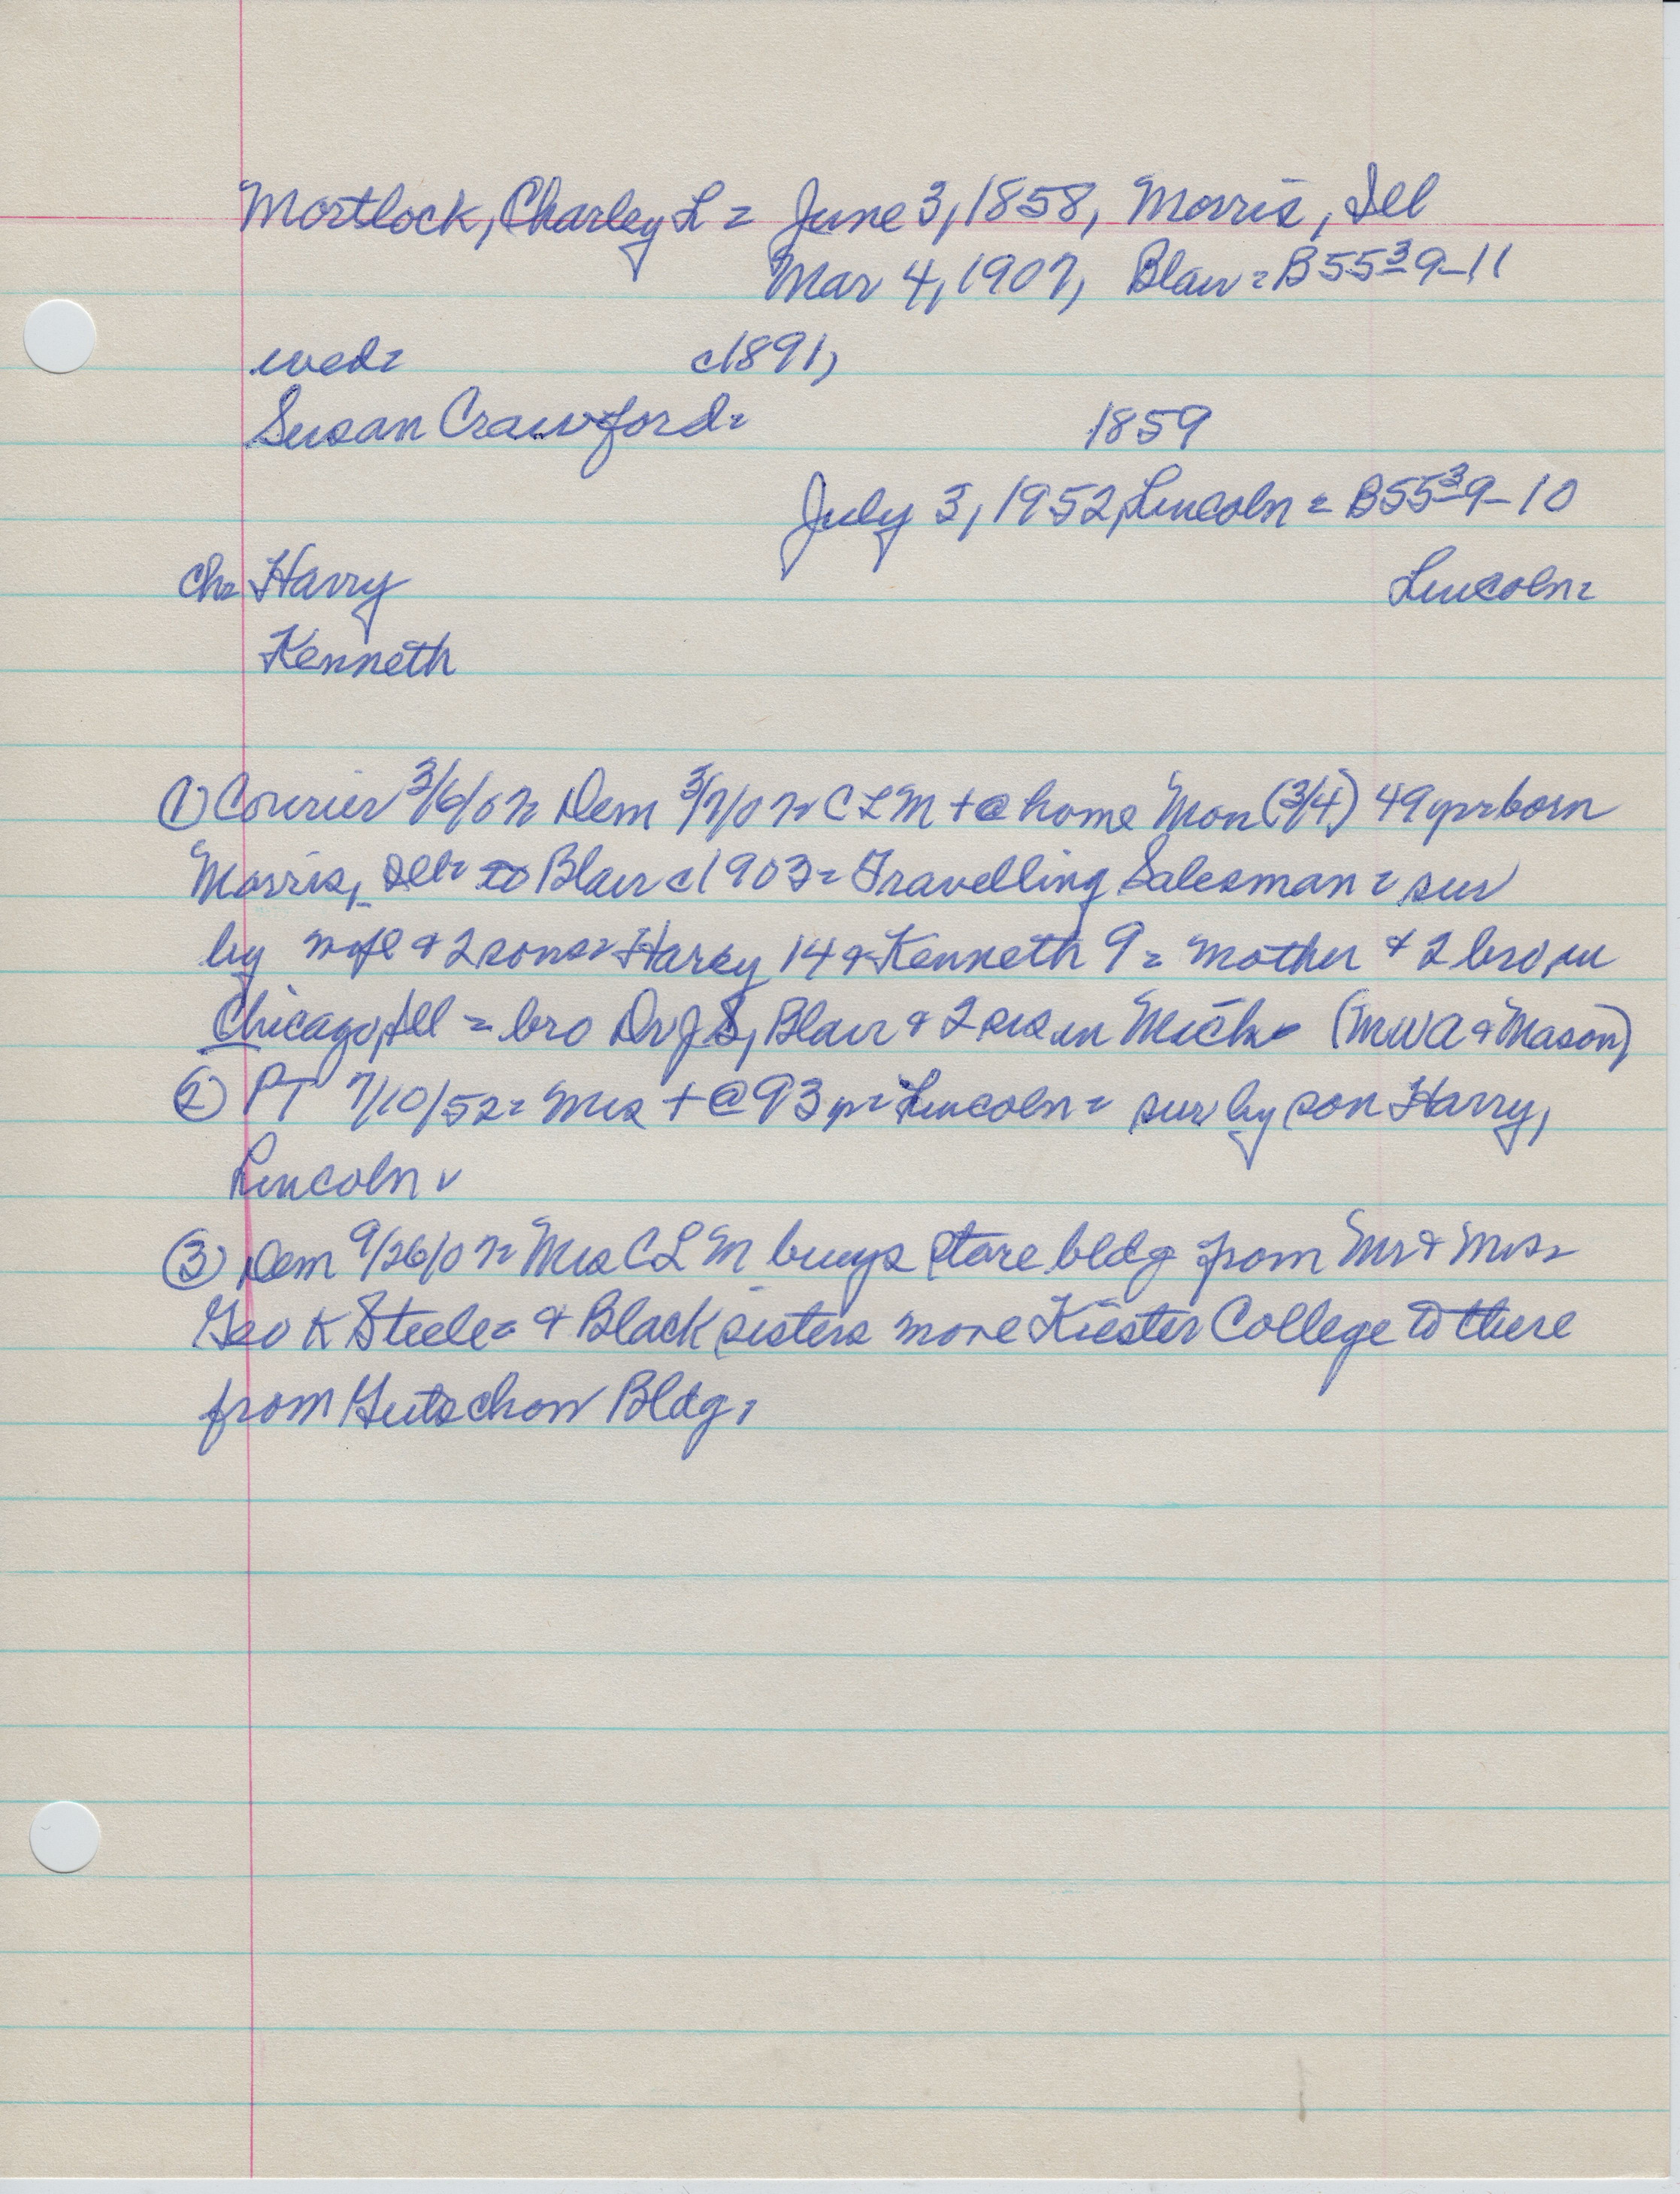 Mortlock, Charley L = June 3, 1858, Morris, Ill
Mar 4, 1907, Blair = B55 3 9-11
wed= c1891,
Susan Crawford= 1859
July 3, 1952, Lincoln = B55 3 9-10
ch= Harry Lincoln=
Kenneth
① Courier 3/6/07= Dem 3/7/07= C L M + @ home Mon (3/4) 49 yr= born
Morris, Ill= to Blair c1903= Travelling Salesman = sur
by wife & 2 sons= Harry 14 & Kenneth 9 = mother & 2 bro in
Chicago, Ill = bro Dr J S, Blair & 2 sis in Mich= (MWA & Mason)
② PT 7/10/52= Mrs + @ 93 yr= Lincoln = sur by son Harry,
Lincoln
③ Dem 9/26/07= Mrs C L M buys store bldg from Mr & Mrs=
Geo K Steele= & Black sisters move Kiester College to there
from Gutschow Bldg,